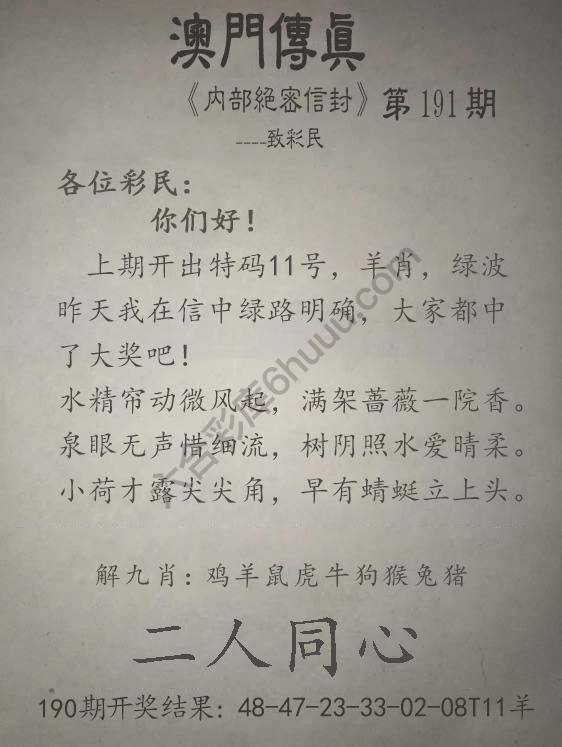 澳門傳眞
《内部絕密信封》第191期
----致彩民
各位彩民：
你们好！
上期开出特码11号，羊肖，绿波
昨天我在信中绿路明确，大家都中
了大奖吧！
水精帘动微风起，满架蔷薇一院香。
泉眼无声惜细流，树阴照水爱晴柔。
小荷才露尖尖角，早有蜻蜓立上头。
解九肖：鸡羊鼠虎牛狗猴兔猪
二人同心
190期开奖结果：48-47-23-33-02-08T11羊
六合彩库6huuu.com